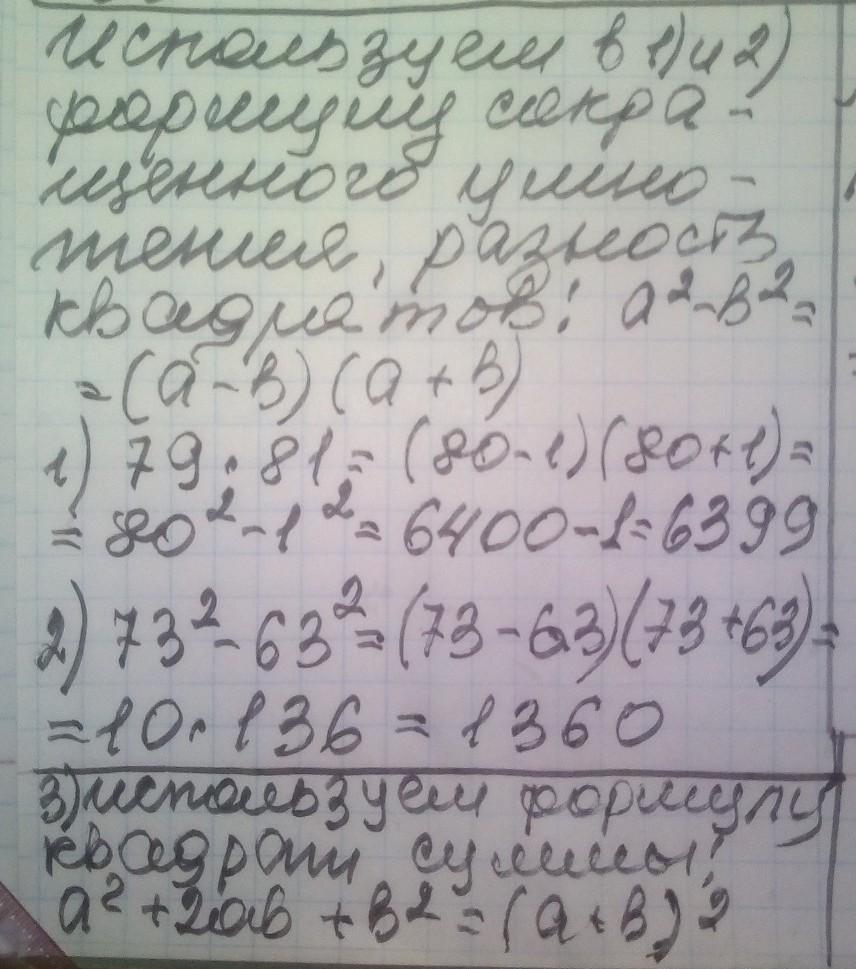 Используем в 1) и 2)
формулу сокра-
щенного умно-
жения, разность
квадратов: a²-b²=
=(a-b)(a+b)
1) 79·81=(80-1)(80+1)=
=80²-1²=6400-1=6399
2) 73²-63²=(73-63)(73+63)=
=10·136=1360
3) используем формулу
квадрат суммы:
a²+2ab+b²=(a+b)²